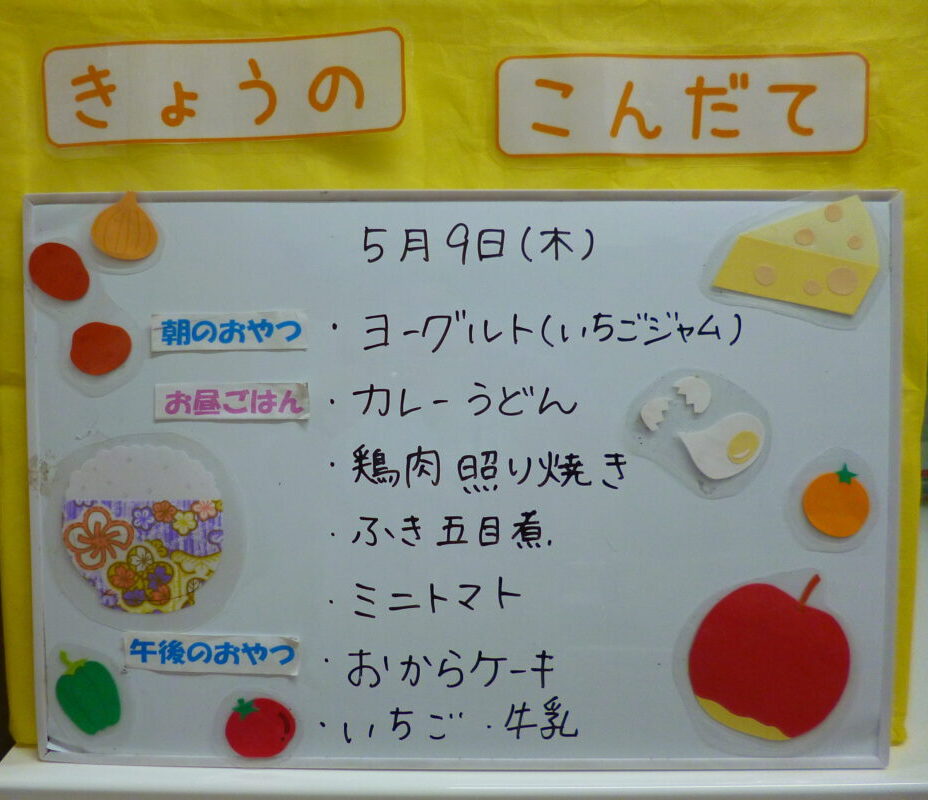 きょうの こんだて
5月9日(木)
朝のおやつ ・ヨーグルト(いちごジャム)
お昼ごはん ・カレーうどん
・鶏肉 照り焼き
・ふき五目煮
・ミニトマト
午後のおやつ ・おからケーキ
・いちご ・牛乳